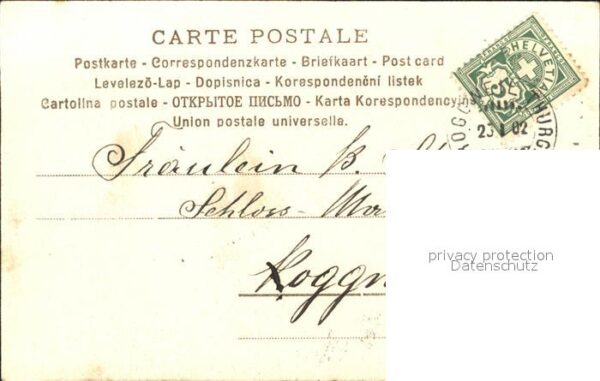 CARTE POSTALE
Postkarte - Correspondenzkarte - Briefkaart - Post card
Levelező-Lap - Dopisnica - Korespondenční listek
Cartolina postale - ОТКРЫТОЕ ПИСЬМО - Karta Korespondencyjna
Union postale universelle.
HELVETIA
5
23 I 02
Fräulein B.
Schloss-
privacy protection
Datenschutz